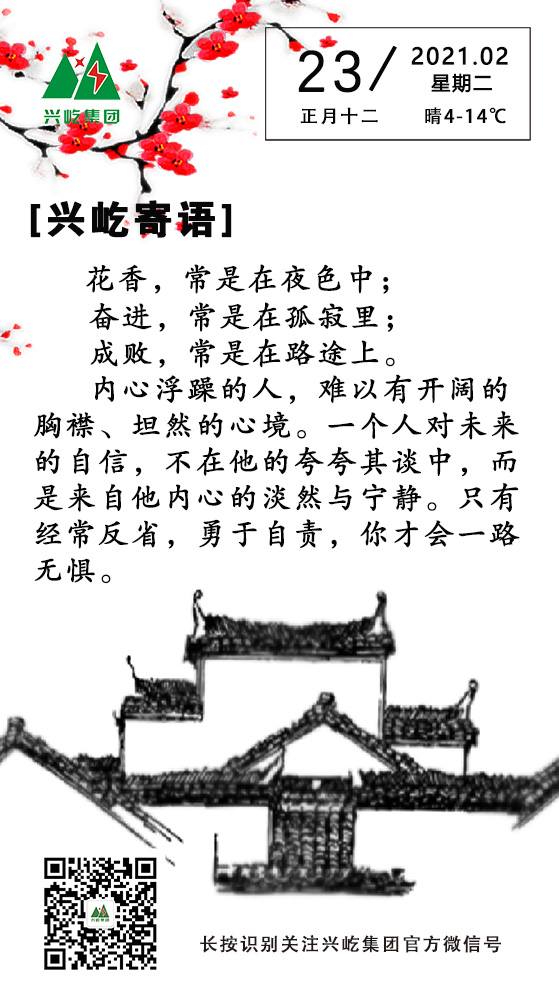 兴屹集团
23/
2021.02
星期二
正月十二
晴4-14℃
[兴屹寄语]
花香，常是在夜色中；
奋进，常是在孤寂里；
成败，常是在路途上。
内心浮躁的人，难以有开阔的
胸襟、坦然的心境。一个人对未来
的自信，不在他的夸夸其谈中，而
是来自他内心的淡然与宁静。只有
经常反省，勇于自责，你才会一路
无惧。
兴屹集团
长按识别关注兴屹集团官方微信号